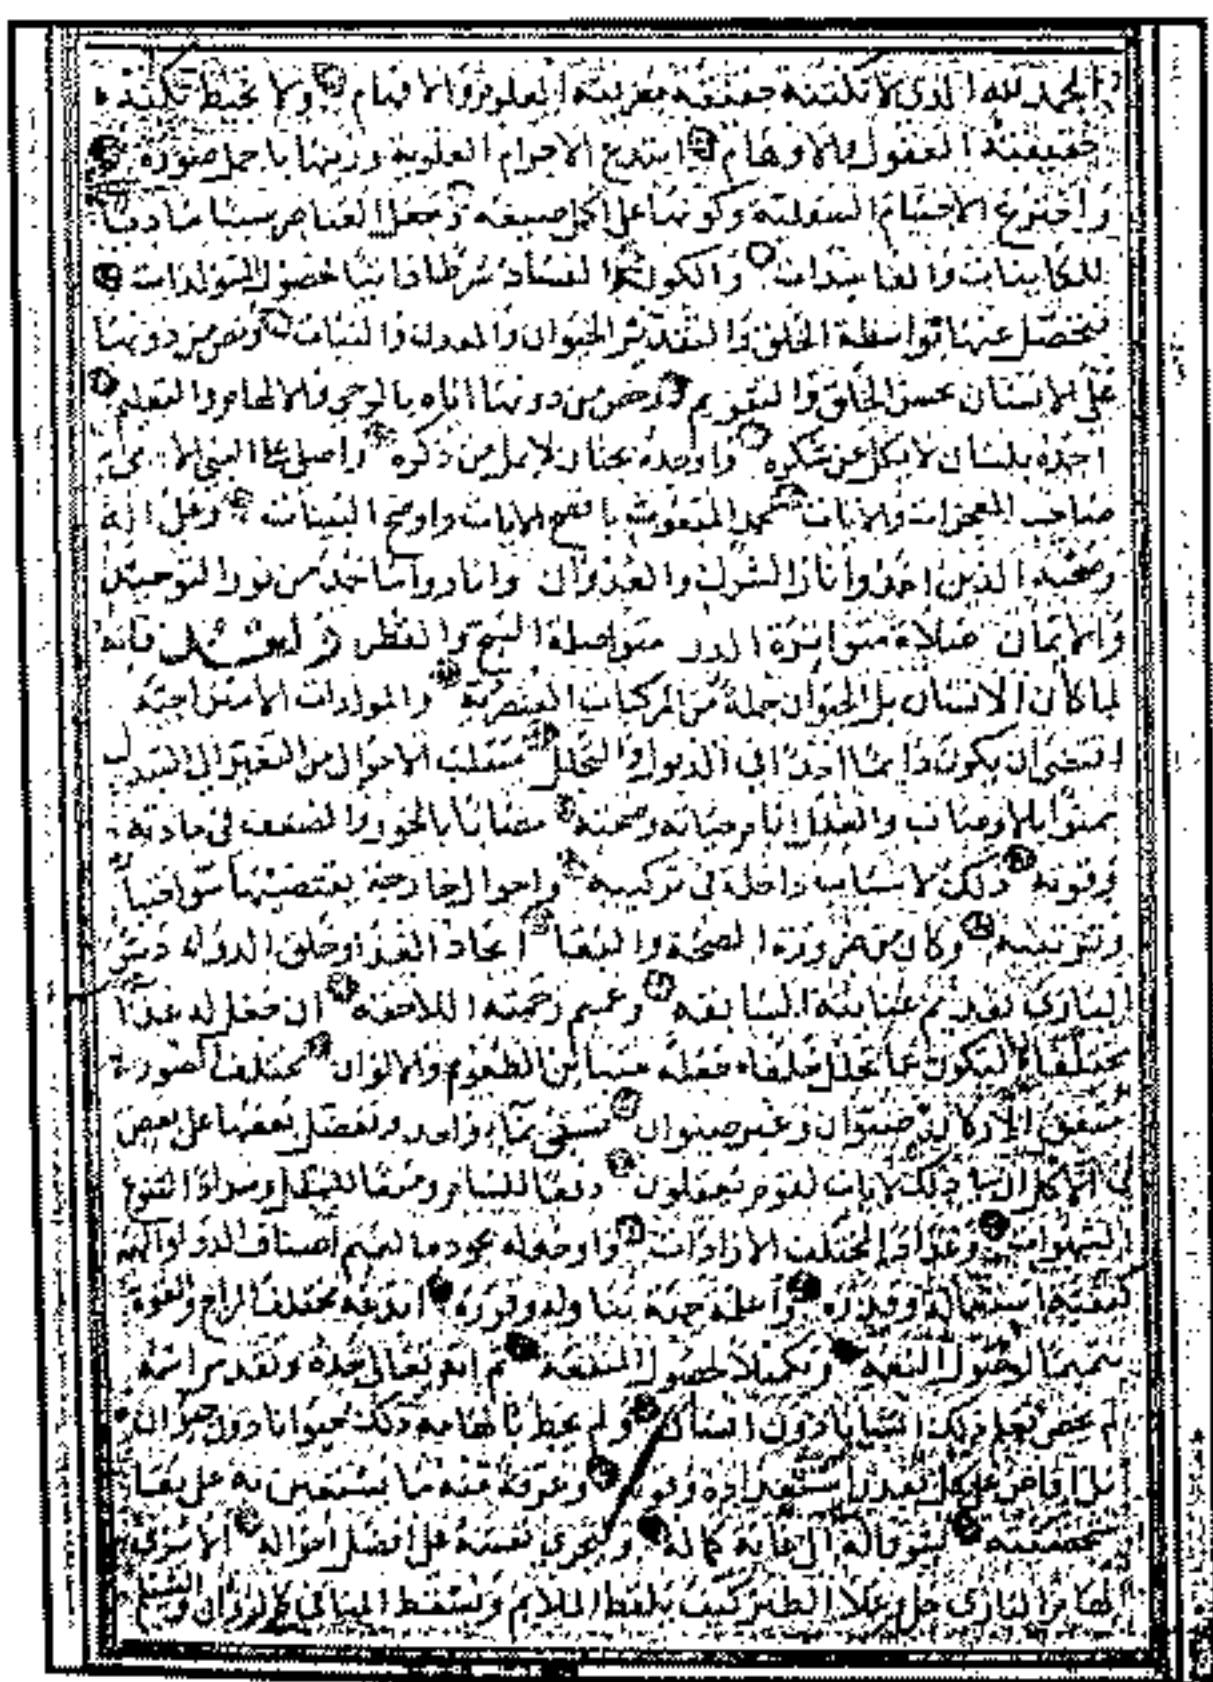 الحمد لله الذى لا تكتنه حقيقة معرفته العلوم والافهام ولا تحيط بكنه
حقيقته العقول والاوهام ابتدع الاجرام العلوية وزينها باجمل صورة
واخترع الاجسام السفلية وكونها على اكمل صيغة وجعل العناصر سببا ماديا
للكاينات والفاسدات والكون والفساد شرطا ذاتيا لحصول المتولدات
فتحصل عنها بواسطة الخلق والتقدير الحيوان والمعدن والنبات وخص من دونها
على الانسان بحسن الخلق والتقويم وخص من دونها اياه بالوحى والالهام والتعليم
احمده بلسان لا يكل عن شكره واوحده بجنان لا يمل من ذكره واصلى على النبى الامى
صاحب المعجزات والايات محمد المبعوث بافصح الايات واوضح البينات وعلى اله
وصحبه الذين اخمدوا نار الشرك والعدوان واناروا ما خمد من نور التوحيد
والايمان صلاة متواترة الدرر متواصلة السح والقطر وبعد فانه
لما كان الانسان بل الحيوان جملة من المركبات العنصرية والمولدات الامتزاجية
اقتضى ان يكون دايما اخذا فى الذبول والتحلل متقلب الاحوال من التغير الى التبدل
ممنوا بالاوصاب والعلل ايام حياته وصحته مصابا بالخور والضعف فى مادته
وقوته وذلك لاسباب داخلة فى تركيبه واحوال خارجة يقتضيها
وترتيبه وكان من ضرورة الصحة والبقا ايجاد الغذا وخلق الدوا
البارى بقديم عنايته السابقة وعميم رحمته اللاحقة ان جعل له غذا
مختلفا ليكون عما تحلل خلفا فجعله متباين الطعوم والالوان مختلف الصورة
متفق الاركان صنوان وغير صنوان تسقى بماء واحد ونفضل بعضها على بعض
فى الاكل ان فى ذلك لايات لقوم يعقلون دفعا للسام ومنعا للملل ومراد التنوع
الشهوات وغذا المختلف الارادات واوحى له بجوده ما اليهم اصناف الدوا والهم
كيفية استعماله وقدره واعلمه جهة تناوله وقرره ابدعه مختلف المزاج والقوة
تتميما لحصول النفع وتكميلا لحصول المنفعة ثم انه تعالى جده وتقدس اسمه
لم يخص بعلم ذلك انسانا دون انسان ولم يحظ بالهامه ذلك حيوانا دون حيوان
بل افاض على كل بقدر استعداده وقوته وعرفه منه ما يستعين به على بقا
شخصيته ليتوق الى غاية كماله ويجرى نفسه على افضل احواله الا ترى
الهام البارى جل وعلا الطير كيف يلقط الملايم ويسقط المنافى كالزوان والشيلم